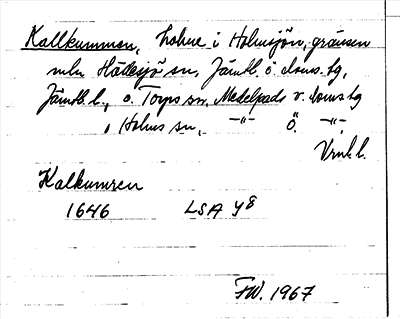 Kallkummen, holme i Holmsjön, gränsen
mln Hällesjö sn, Jämtl. ö. doms.hg,
Jämtl. l., o. Torps sn, Medelpads v. domshg
o Holms sn, —"— Ö. —"—.
Vrnl. l.
Kalkumren
1646 LSA y8
FW. 1967